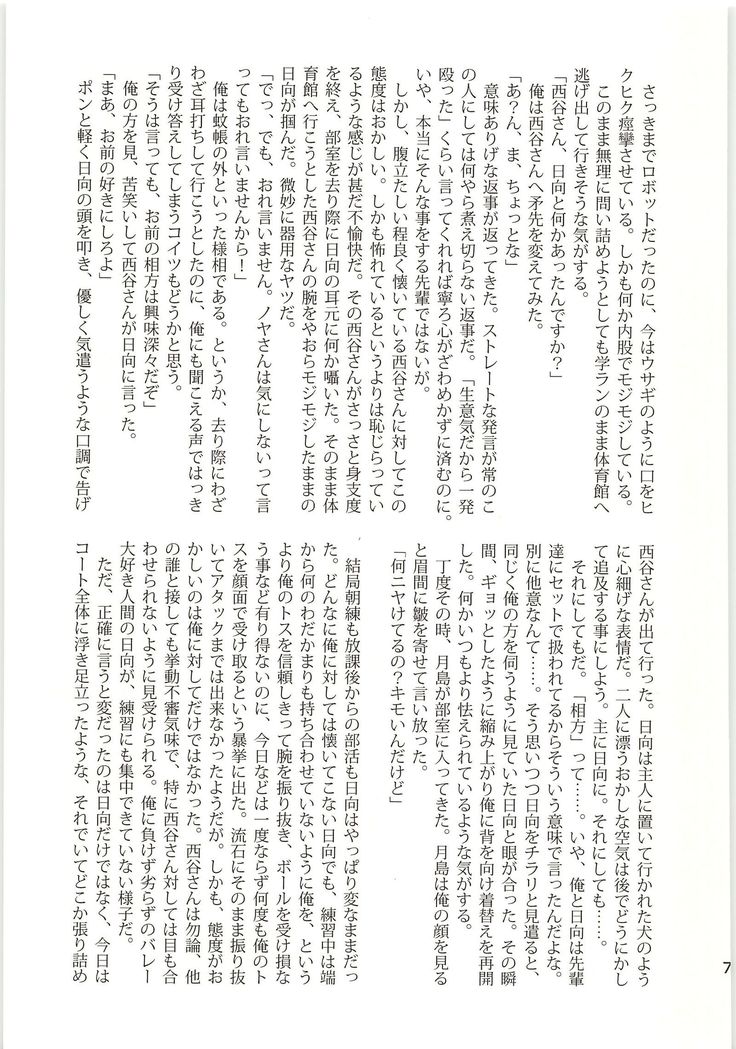 さっきまでロボットだったのに、今はウサギのように口をヒ
クヒク痙攣させている。しかも何か内股でモジモジしている。
このまま無理に問い詰めようとしても学ランのまま体育館へ
逃げ出して行きそうな気がする。
「西谷さん、日向と何かあったんですか?」
俺は西谷さんへ矛先を変えてみた。
「あ?ん、ま、ちょっとな」
意味ありげな返事が返ってきた。ストレートな発言が常のこ
の人にしては何やら煮え切らない返事だ。「生意気だから一発
殴った」くらい言ってくれれば寧ろ心がざわめかずに済むのに。
いや、本当にそんな事をする先輩ではないが。
しかし、腹立たしい程良く懐いている西谷さんに対してこの
態度はおかしい。しかも怖れているというよりは恥じらってい
るような感じが甚だ不愉快だ。その西谷さんがさっさと身支度
を終え、部室を去り際に日向の耳元に何か囁いた。そのまま体
育館へ行こうとした西谷さんの腕をやおらモジモジしたままの
日向が掴んだ。微妙に器用なヤツだ。
「でっ、でも、おれ言いません。ノヤさんは気にしないって言
ってもおれ言いませんから!」
俺は蚊帳の外といった様相である。というか、去り際にわざ
わざ耳打ちして行こうとしたのに、俺にも聞こえる声ではっき
り受け答えしてしまうコイツもどうかと思う。
「そうは言っても、お前の相方は興味深々だぞ」
俺の方を見、苦笑いして西谷さんが日向に言った。
「まあ、お前の好きにしろよ」
ポンと軽く日向の頭を叩き、優しく気遣うような口調で告げ
西谷さんが出て行った。日向は主人に置いて行かれた犬のよう
に心細げな表情だ。二人に漂うおかしな空気は後でどうにかし
て追及する事にしよう。主に日向に。それにしても……。
それにしてもだ。「相方」って……。いや、俺と日向は先輩
達にセットで扱われてるからそういう意味で言ったんだよな。
別に他意なんて……。そう思いつつ日向をチラリと見遣ると、
同じく俺の方を伺うように見ていた日向と眼が合った。その瞬
間、ギョッとしたように縮み上がり俺に背を向け着替えを再開
した。何かいつもより怯えられているような気がする。
丁度その時、月島が部室に入ってきた。月島は俺の顔を見る
と眉間に皺を寄せて言い放った。
「何ニヤけてるの?キモいんだけど」
結局朝練も放課後からの部活も日向はやっぱり変なままだっ
た。どんなに俺に対しては懐いてこない日向でも、練習中は端
から何のわだかまりも持ち合わせていないように俺を、という
より俺のトスを信頼しきって腕を振り抜き、ボールを受け損な
う事など有り得ないのに、今日などは一度ならず何度も俺のト
スを顔面で受け取るという暴挙に出た。流石にそのまま振り抜
いてアタックまでは出来なかったようだが。しかも、態度がお
かしいのは俺に対してだけではなかった。西谷さんは勿論、他
の誰と接しても挙動不審気味で、特に西谷さん対しては目も合
わせられないように見受けられる。俺に負けず劣らずのバレー
大好き人間の日向が、練習にも集中できていない様子だ。
ただ、正確に言うと変だったのは日向だけではなく、今日は
コート全体に浮き足立ったような、それでいてどこか張り詰め
7